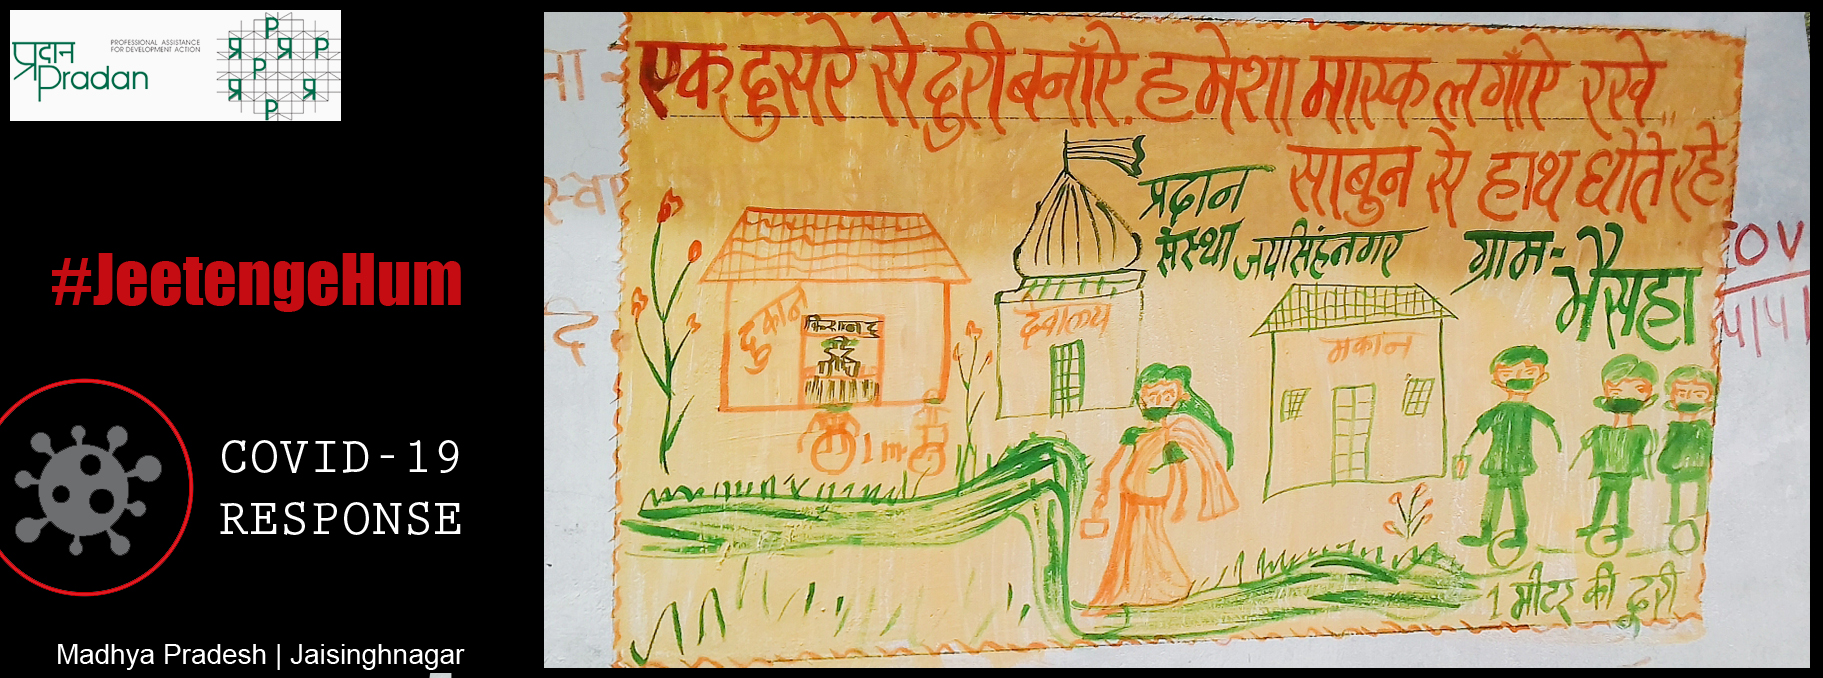 प्रदान
Pradan
PROFESSIONAL ASSISTANCE
FOR DEVELOPMENT ACTION
#JeetengeHum
COVID-19
RESPONSE
Madhya Pradesh | Jaisinghnagar
एक दुसरे से दुरी बनाँऐ. हमेशा मास्क लगाँऐ रखे..
साबुन से हाथ धोते रहे
प्रदान
संस्था जयसिंहनगर
ग्राम-भैसहा
दुकान
किराना दु
देवालय
मकान
1 m
1 मीटर की दुरी
COV